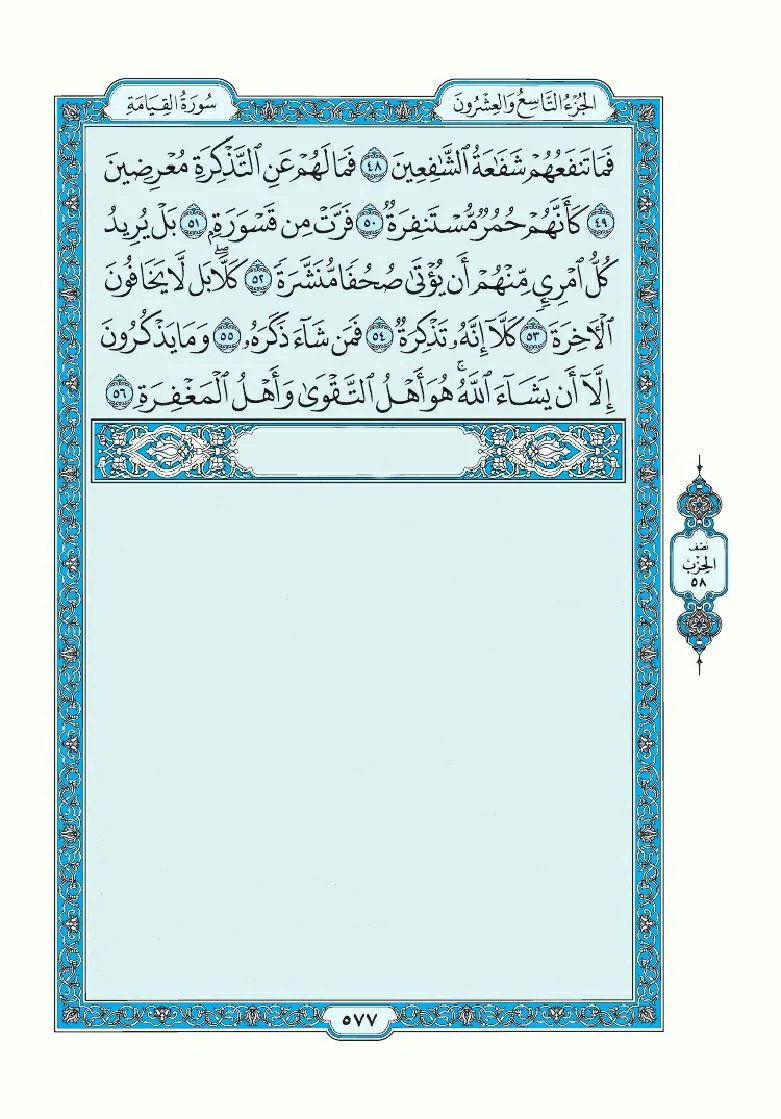 سُورَةُ القِيَامَةِ
الجُزْءُ التَّاسِعُ وَالعِشْرُونَ
فَمَا تَنفَعُهُمْ شَفَٰعَةُ ٱلشَّٰفِعِينَ ٤٨ فَمَا لَهُمْ عَنِ ٱلتَّذْكِرَةِ مُعْرِضِينَ
٤٩ كَأَنَّهُمْ حُمُرٌ مُّسْتَنفِرَةٌ ٥٠ فَرَّتْ مِن قَسْوَرَةٍۭ ٥١ بَلْ يُرِيدُ
كُلُّ ٱمْرِئٍ مِّنْهُمْ أَن يُؤْتَىٰ صُحُفًا مُّنَشَّرَةً ٥٢ كَلَّاۖ بَل لَّا يَخَافُونَ
ٱلْأٓخِرَةَ ٥٣ كَلَّآ إِنَّهُۥ تَذْكِرَةٌ ٥٤ فَمَن شَآءَ ذَكَرَهُۥ ٥٥ وَمَا يَذْكُرُونَ
إِلَّآ أَن يَشَآءَ ٱللَّهُۚ هُوَ أَهْلُ ٱلتَّقْوَىٰ وَأَهْلُ ٱلْمَغْفِرَةِ ٥٦
نصف
الحِزْب
٥٨
٥٧٧